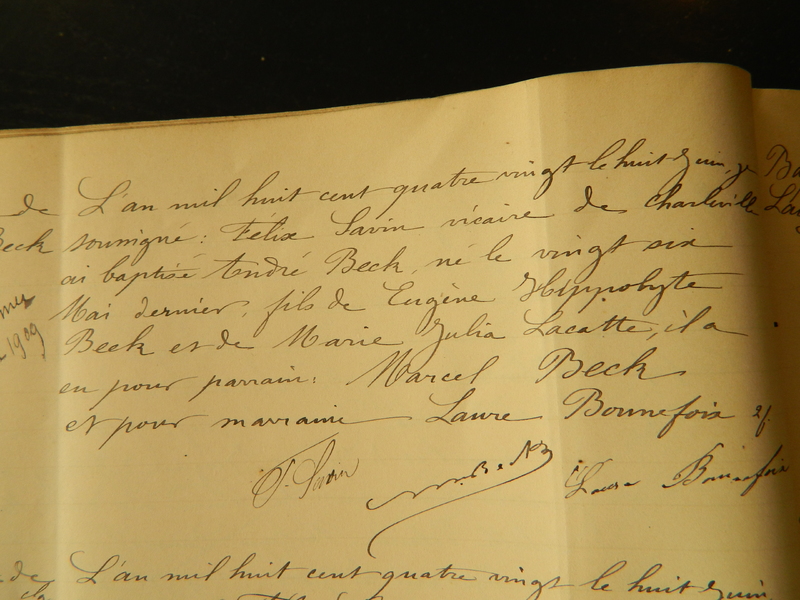 de L'an mil huit cent quatre vingt le huit Juin, je
Beck soussigné: Félix Savin vicaire de Charleville
ai baptisé André Beck, né le vingt six
Mai dernier, fils de Eugène Hippolyte
Beck et de Marie Julia Lacatte, il a
1909
eu pour parrain: Marcel Beck
et pour marraine Laure Bonnefoix
F. Savin
M. Beck
Laure Bonnefoix
de L'an mil huit cent quatre vingt le huit Juin,